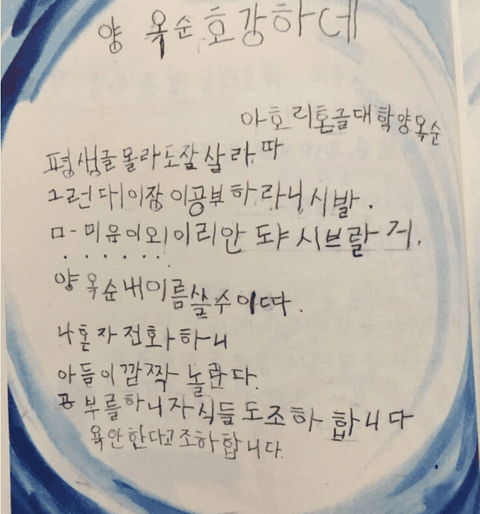 양 옥순 호강하네
아호리혼글대학양옥순
평생글몰라도잘살라따
그런대이장이공부하라니,시발.
ㅁ-미음이외이리안 도야 시브랄 거.
양옥순내이름쓸수이따.
나혼자전화하니
아들이깜짝 놀란다.
공부를하니자식들도조하합니다
욕안한다고조하합니다.